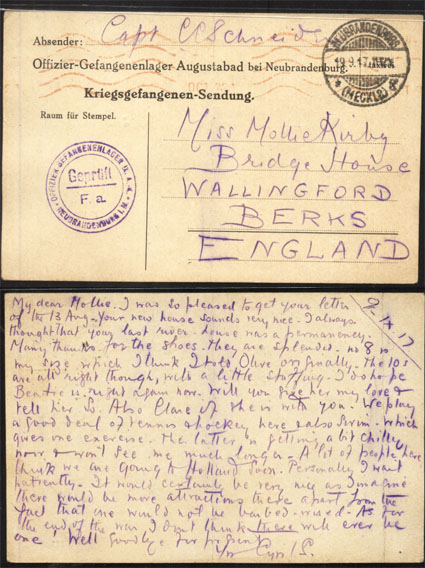 Absender: Capt C C Schneider
Offizier-Gefangenenlager Augustabad bei Neubrandenburg.
Kriegsgefangenen-Sendung.
Raum für Stempel.
NEUBRANDENBURG
19.9.17
(MECKLB)
OFFIZIER GEFANGENENLAGER
Geprüft
F. a.
NEUBRANDENBURG I. M.
Miss Mollie Kirby
Bridge House
WALLINGFORD
BERKS
ENGLAND
9.IX.17
My dear Mollie. I was so pleased to get your letter
of the 13 Aug. Your new house sounds very nice. I always
thought that your last river-house was a permanency.
Many thanks for the shoes. They are splendid. no 8 is
my size which I think I told Olive originally. The 10s
are all right though, with a little stuffing. I do hope
Beatrice is right again now. Will you give her my love &
tell her so. Also Clare if she is with you. We play
a good deal of tennis & hockey here & also swim. which
gives one exercise. The latter is getting a bit chilly
now & won't see me much longer. A lot of people here
think we are going to Holland soon. Personally I wait
patiently. It would certainly be very nice as I imagine
there would be more attractions there apart from the
fact that one would not be barbed-wired. As for
the end of the war I don't think there will ever be
one! Well goodbye for present
Cyril S.